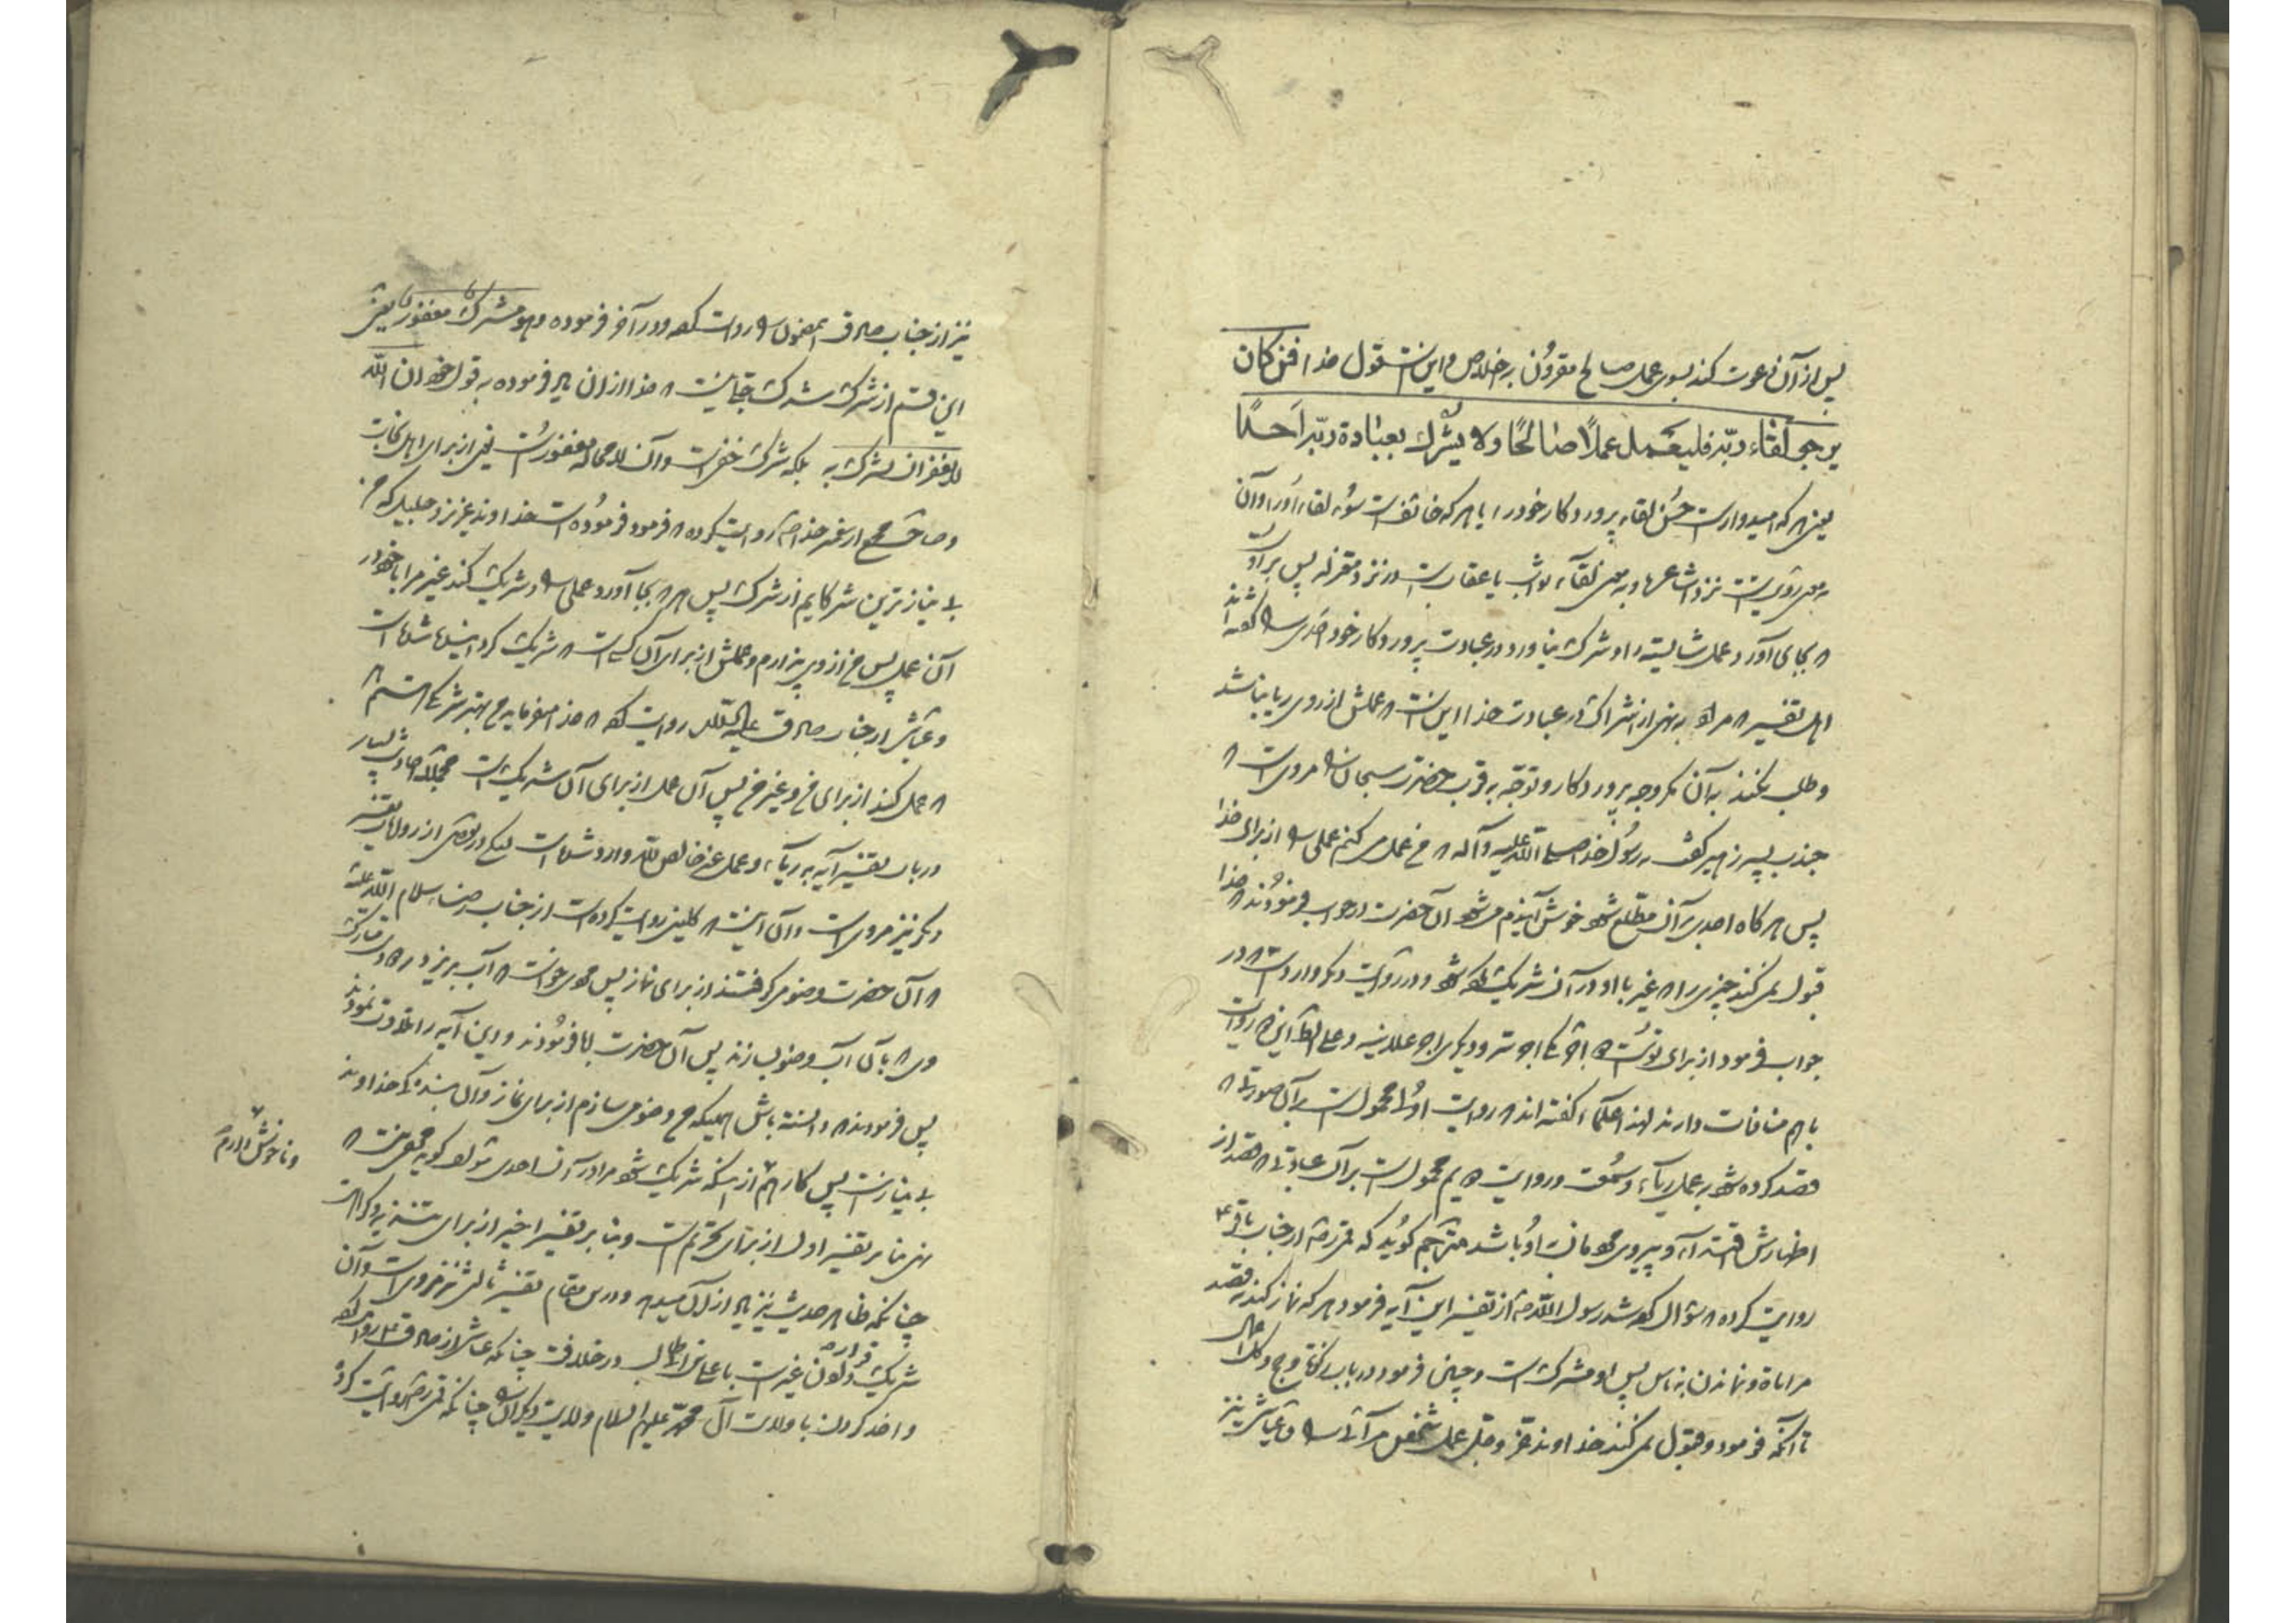 پس از آن دعوت کند بسوی عمل صالح مقرون به اخلاص و اینست قول خدا فمن کان
یرجو لقاء ربّه فلیعمل عملاً صالحًا ولا یشرک بعبادة ربّه احدًا
یعنی هر که امیدوارست حسن لقاء پروردگار خود را یا هر که خائف است سوء لقاء او را و آن
بمعنی رؤیتست نزد اشاعره و بمعنی لقاء ثواب یا عقابست در نزد معتزله پس بر اوست
که بجای آورد عمل شایسته و شرک نیاورد در عبادت پروردگار خود احدی را گفته‌اند
اهل تفسیر که مراد به نهی از اشراک در عبادت خدا این است که عملش از روی ریا نباشد
و طلب نکند به آن مگر وجه پروردگار و توجّه به قرب حضرت سبحان را مرویست که
جندب پسر زهیر گفت به رسول خدا صلی الله علیه وآله که من عمل می‌کنم عملی را از برای خدا
پس هر گاه احدی بر آن مطّلع شود خوش آیندم می‌شود آن حضرت در جواب فرمودند که خدا
قبول نمی‌کند چیزی را که غیر با او در آن شریک شود و در روایت دیگر وارد است که در
جواب فرمود از برای تو است دو اجر یکی اجر سر و دیگری اجر علانیه و علی الظاهر این دو روایت
با هم منافات دارند لهذا علماء گفته‌اند که روایت اولی محمول است بر آن صورتی که
قصد کرده شود به عمل ریاء و سمعت و روایت دویم محمول است بر آن عبادتی که قصد از
اظهارش اقتداء و پیروی مردمان به او باشد مترجم گوید که قمی ره از جناب باقر ع
روایت کرده که سؤال کرده شد رسول الله ص از تفسیر این آیه فرمود هر که نماز کند به قصد
مراءاة و نمایاندن به ناس پس او مشرک است و چنین فرمود در باب زکوة و حج و کل اعمال
تا آنکه فرمود و قبول نمی‌کند خداوند عزّ و جلّ عمل شخص مرائی را و عیاشی نیز
نیز از جناب صادق ع بمضمون را روایت کرده و در آخر فرموده و هو مشرک مغفور یعنی
این قسم از شرک شرک حقیقی نیست که خدا از آن فرموده به قول خود ان الله
لا یغفر ان یشرک به بلکه شرک خفی است و آن لا محاله مغفور است یعنی از برای اهل نجات
و صاحب مجمع از پیغمبر خدا ص روایت کرده که فرمود فرموده است خداوند عزیز و جلیل که من
بی نیازترین شرکایم از شرک پس هر که بجا آورد عملی را و شریک کند غیر مرا با خود در
آن عمل پس من از وی بیزارم و عملش از برای آن کس است که شریک کرده شده است
و عیاشی از جناب صادق علیه السلام روایت کرده که خدا می‌فرماید من بهتر شریکی هستم که
که عمل کند از برای من و غیر من پس آن عمل از برای آن شریک است مجملاً احادیث بسیار
در باب تفسیر آیه به ریاء و عمل غیر خالص لله وارد شده است لیکن در بعضی از روایات تفسیر
دیگر نیز مرویست و آن اینست که کلینی روایت کرده است از جناب رضا سلام الله علیه
که آن حضرت وضو می‌گرفتند از برای نماز پس مردی خواست که آب بریزد در دست مبارکش
وی که با آن آب وضو بسازند پس آن حضرت ابا فرمودند و این آیه را تلاوت نمودند
پس فرمودند که دانسته باش اینکه من وضو می‌سازم از برای نماز و آن بندگی خداوند
بی نیاز است پس کاره هستم از اینکه شریک شود مرا در آن احدی مؤلف گوید مخفی نیست که
نهی بنا بر تفسیر اول از برای تحریم است و بنا بر تفسیر اخیر از برای تنزیه و کراهت
چنانکه ظاهر حدیث نیز دلالت بر آن می‌دهد و در این مقام تفسیر ثالثی نیز مرویست و آن
شریک قرار دادن غیر است با علی بن ابیطالب در خلافت چنانکه عیاشی از صادق ع روایت کرده
و اخذ کردن با ولایت آل محمد علیهم السلام ولایت دیگران را چنانکه قمی ره روایت کرده
و ناخوش دارم